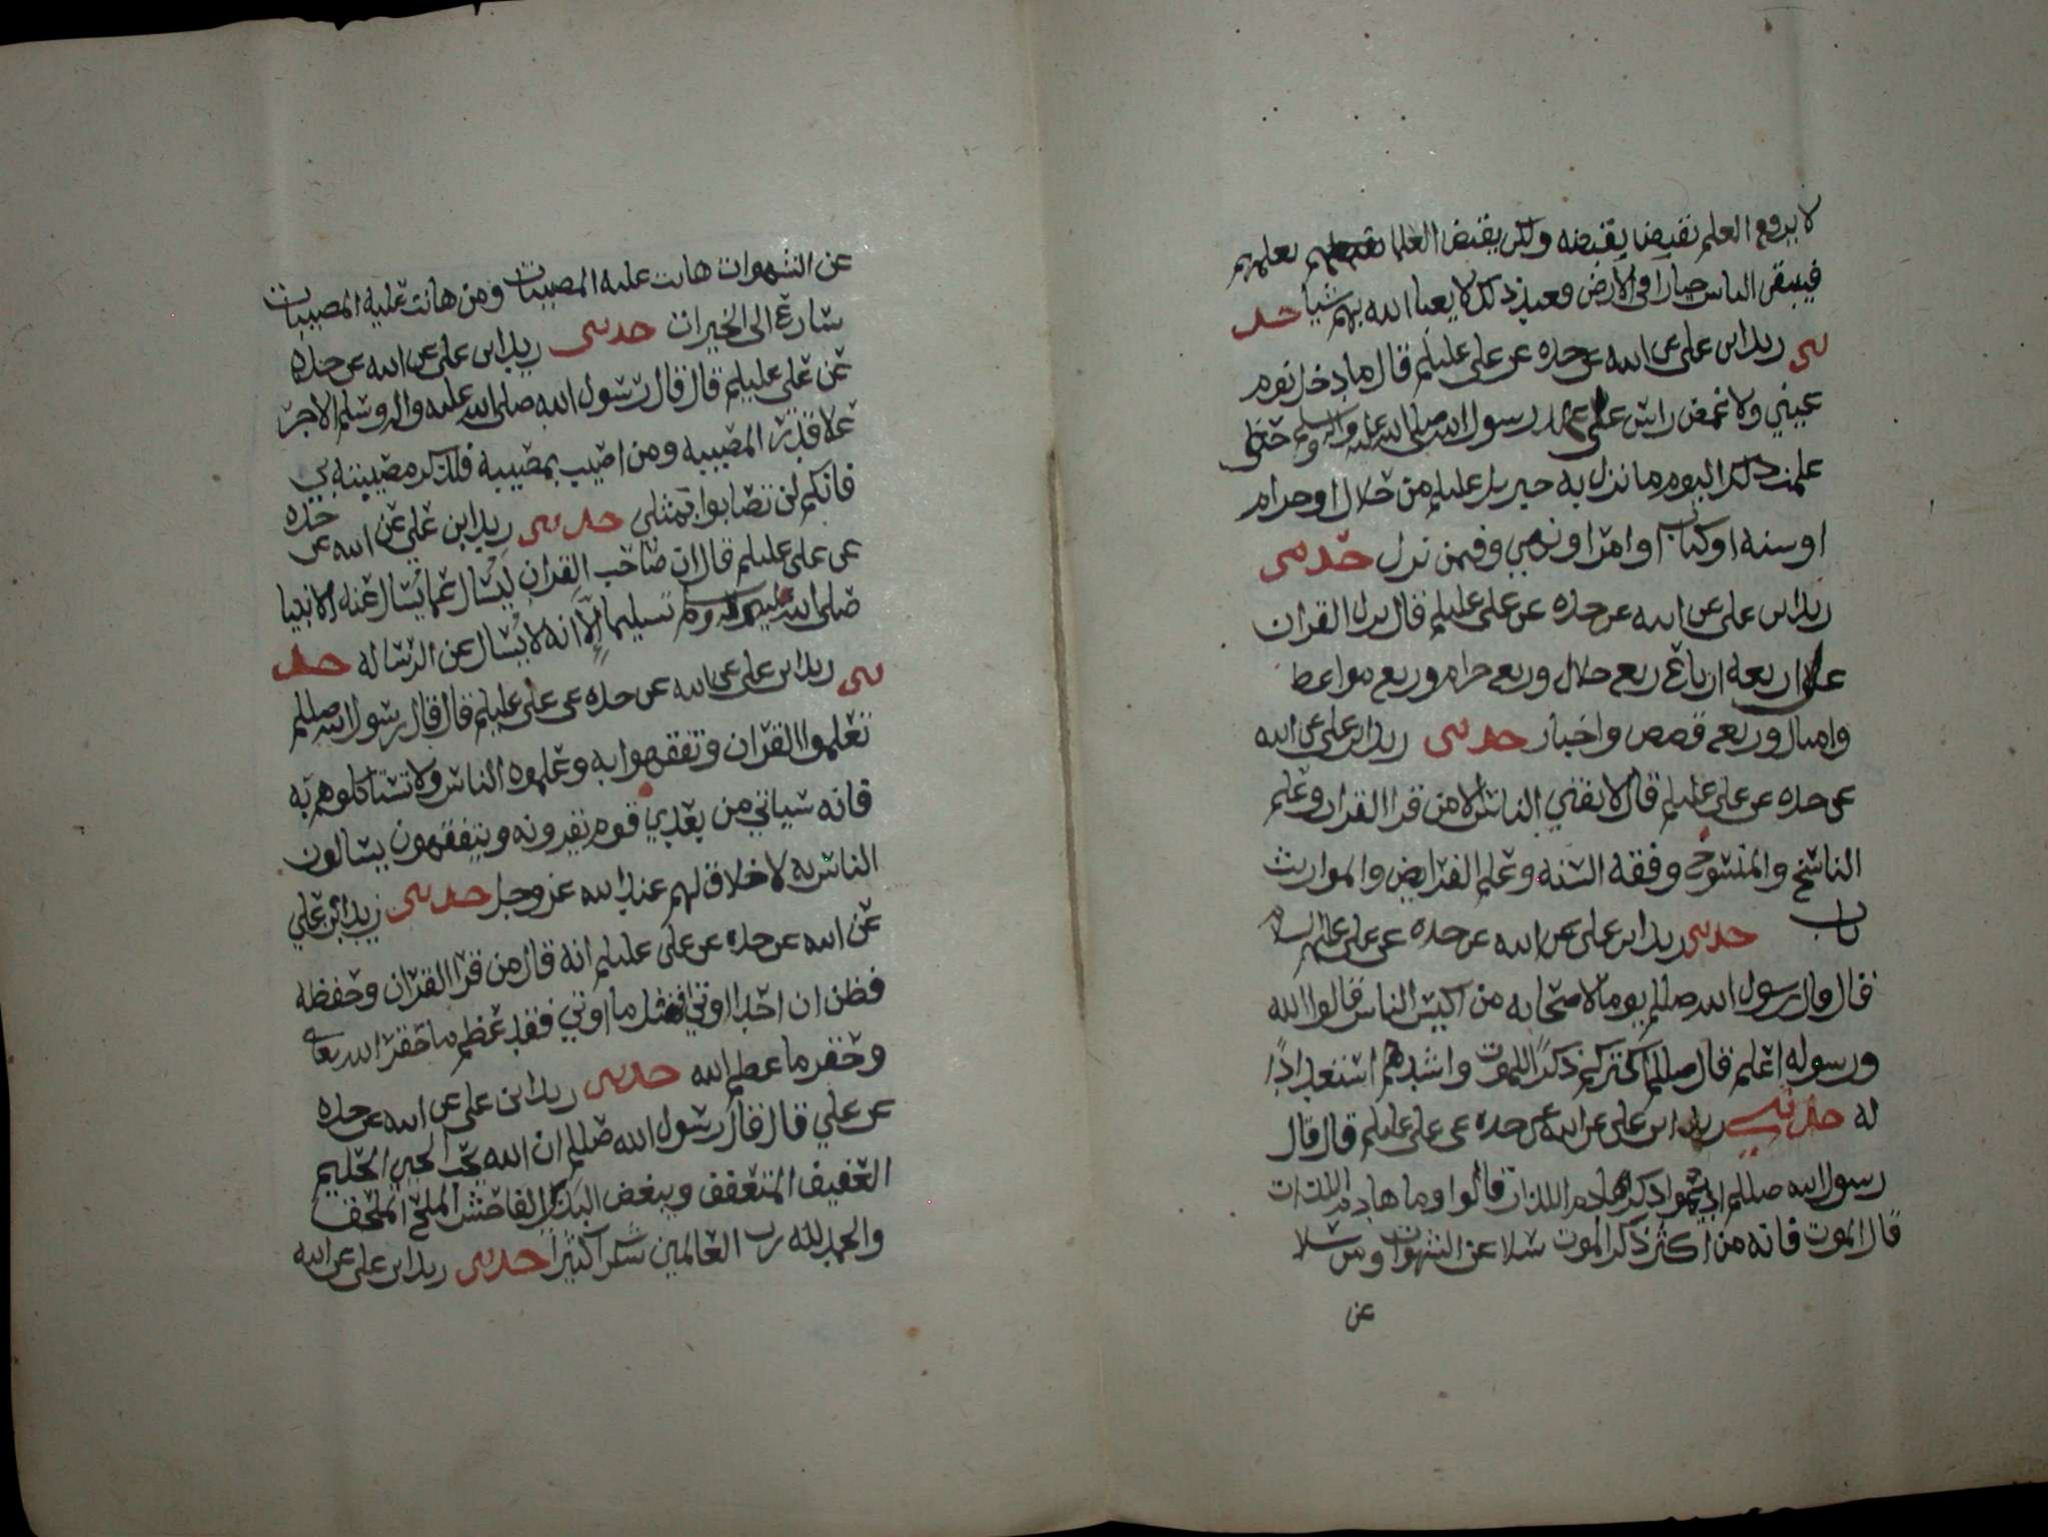 لا يرفع العلم بقبض يقبضه ولكن يقبض العلما بعلمهم
فيبقى الناس حيارا في الارض فعند ذلك لا يعبا الله بهم شيا حد
ثني زيد ابن علي عن ابيه عن جده عن علي عليلم قال ما دخل نوم
عيني ولا غمض راس على عهد رسول الله صلى الله عليه واله وسلم حتى
علمت ذلك اليوم ما نزل به جبريل عليلم من حلال او حرام
او سنه او كتاب او امر او نهي وفيمن نزل حدثني
زيد ابن علي عن ابيه عن جده عن علي عليلم قال نزل القران
على اربعه ارباع ربع حلال وربع حرام وربع مواعظ
وامثال وربع قصص واخبار حدثني زيد ابن علي عن ابيه
عن جده عن علي عليلم قال لا يفتي الناس الا من قرا القران وعلم
الناسخ والمنسوخ وفقه السنه وعلم الفرايض والمواريث
باب حدثني زيد ابن علي عن ابيه عن جده عن علي عليلم السلام
قال قال رسول الله صللم يوما لاصحابه من اكيس الناس قالوا الله
ورسوله اعلم قال صللم اكثركم ذكرًا للموت واشدهم استعدادًا
له حدثني زيد ابن علي عن ابيه عن جده عن علي عليلم قال قال
رسول الله صللم اديموا ذكر هادم اللذات قالوا وما هادم اللذات
قال الموت فانه من اكثر ذكر الموت سلا عن الشهوات ومن سلا
عن
عن الشهوات هانت عليه المصيبات ومن هانت عليه المصيبات
سارع الى الخيرات حدثني زيد ابن علي عن ابيه عن جده
عن علي عليلم قال قال رسول الله صلى الله عليه واله وسلم الاجر
على قدر المصيبه ومن اصيب بمصيبه فليذكر مصيبته بي
فانكم لن تصابوا بمثلي حدثني زيد ابن علي عن ابيه عن جده
عن علي عليلم قال ان صاحب القران يسال عما يسال عنه الانبيا
صلى الله عليهم وسلم تسليما الا انه لا يسال عن الرساله حد
ثني زيد ابن علي عن ابيه عن جده عن علي عليلم قال قال رسول الله صللم
تعلموا القران وتفقهوا به وعلموه الناس ولا تستاكلوهم به
فانه سياتي من بعدي قوم يقرونه ويتفقهون يسالون
الناس به لا خلاق لهم عند الله عز وجل حدثني زيد ابن علي
عن ابيه عن جده عن علي عليلم انه قال من قرا القران وحفظه
فظن ان احدا اوتي مثل ما اوتي فقد عظم ما حقر الله تعالى
وحقر ما عظم الله حدثني زيد ابن علي عن ابيه عن جده
عن علي قال قال رسول الله صللم ان الله يحب الحيي الحليم
العفيف المتعفف ويبغض البذي الفاحش الملح الملحف
والحمد لله رب العالمين شكرا كثيرا حدثني زيد ابن علي عن ابيه